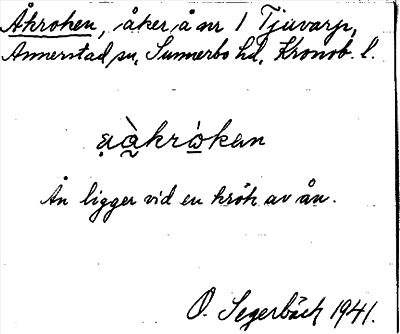 Åkroken, åker å nr 1 Tjuvarp,
Annerstad sn, Sunnerbo hd, Kronob. l.
Ån ligger vid en krök av ån.
O. Segerbäck 1941.